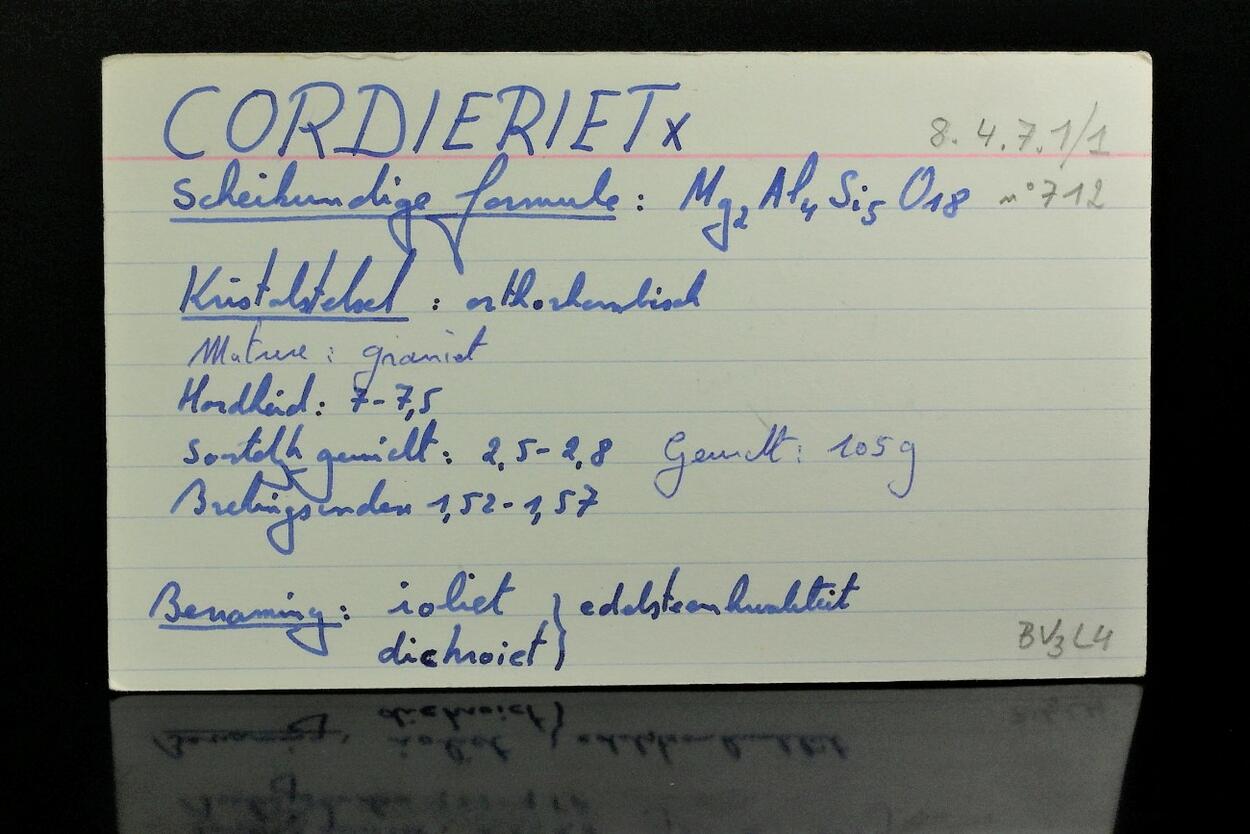 CORDIERIET x 8.4.7.1/1
Scheikundige formule : Mg2 Al4 Si5 O18 n° 712
Kristalstelsel : orthorhombisch
Matrix : graniet
Hardheid : 7-7,5
Soortelk gewicht : 2,5-2,8 Gewicht : 105 g
Brekingsindex 1,52-1,57
Benaming : ioliet } edelsteenkwaliteit
dichroiet }
BV3L4